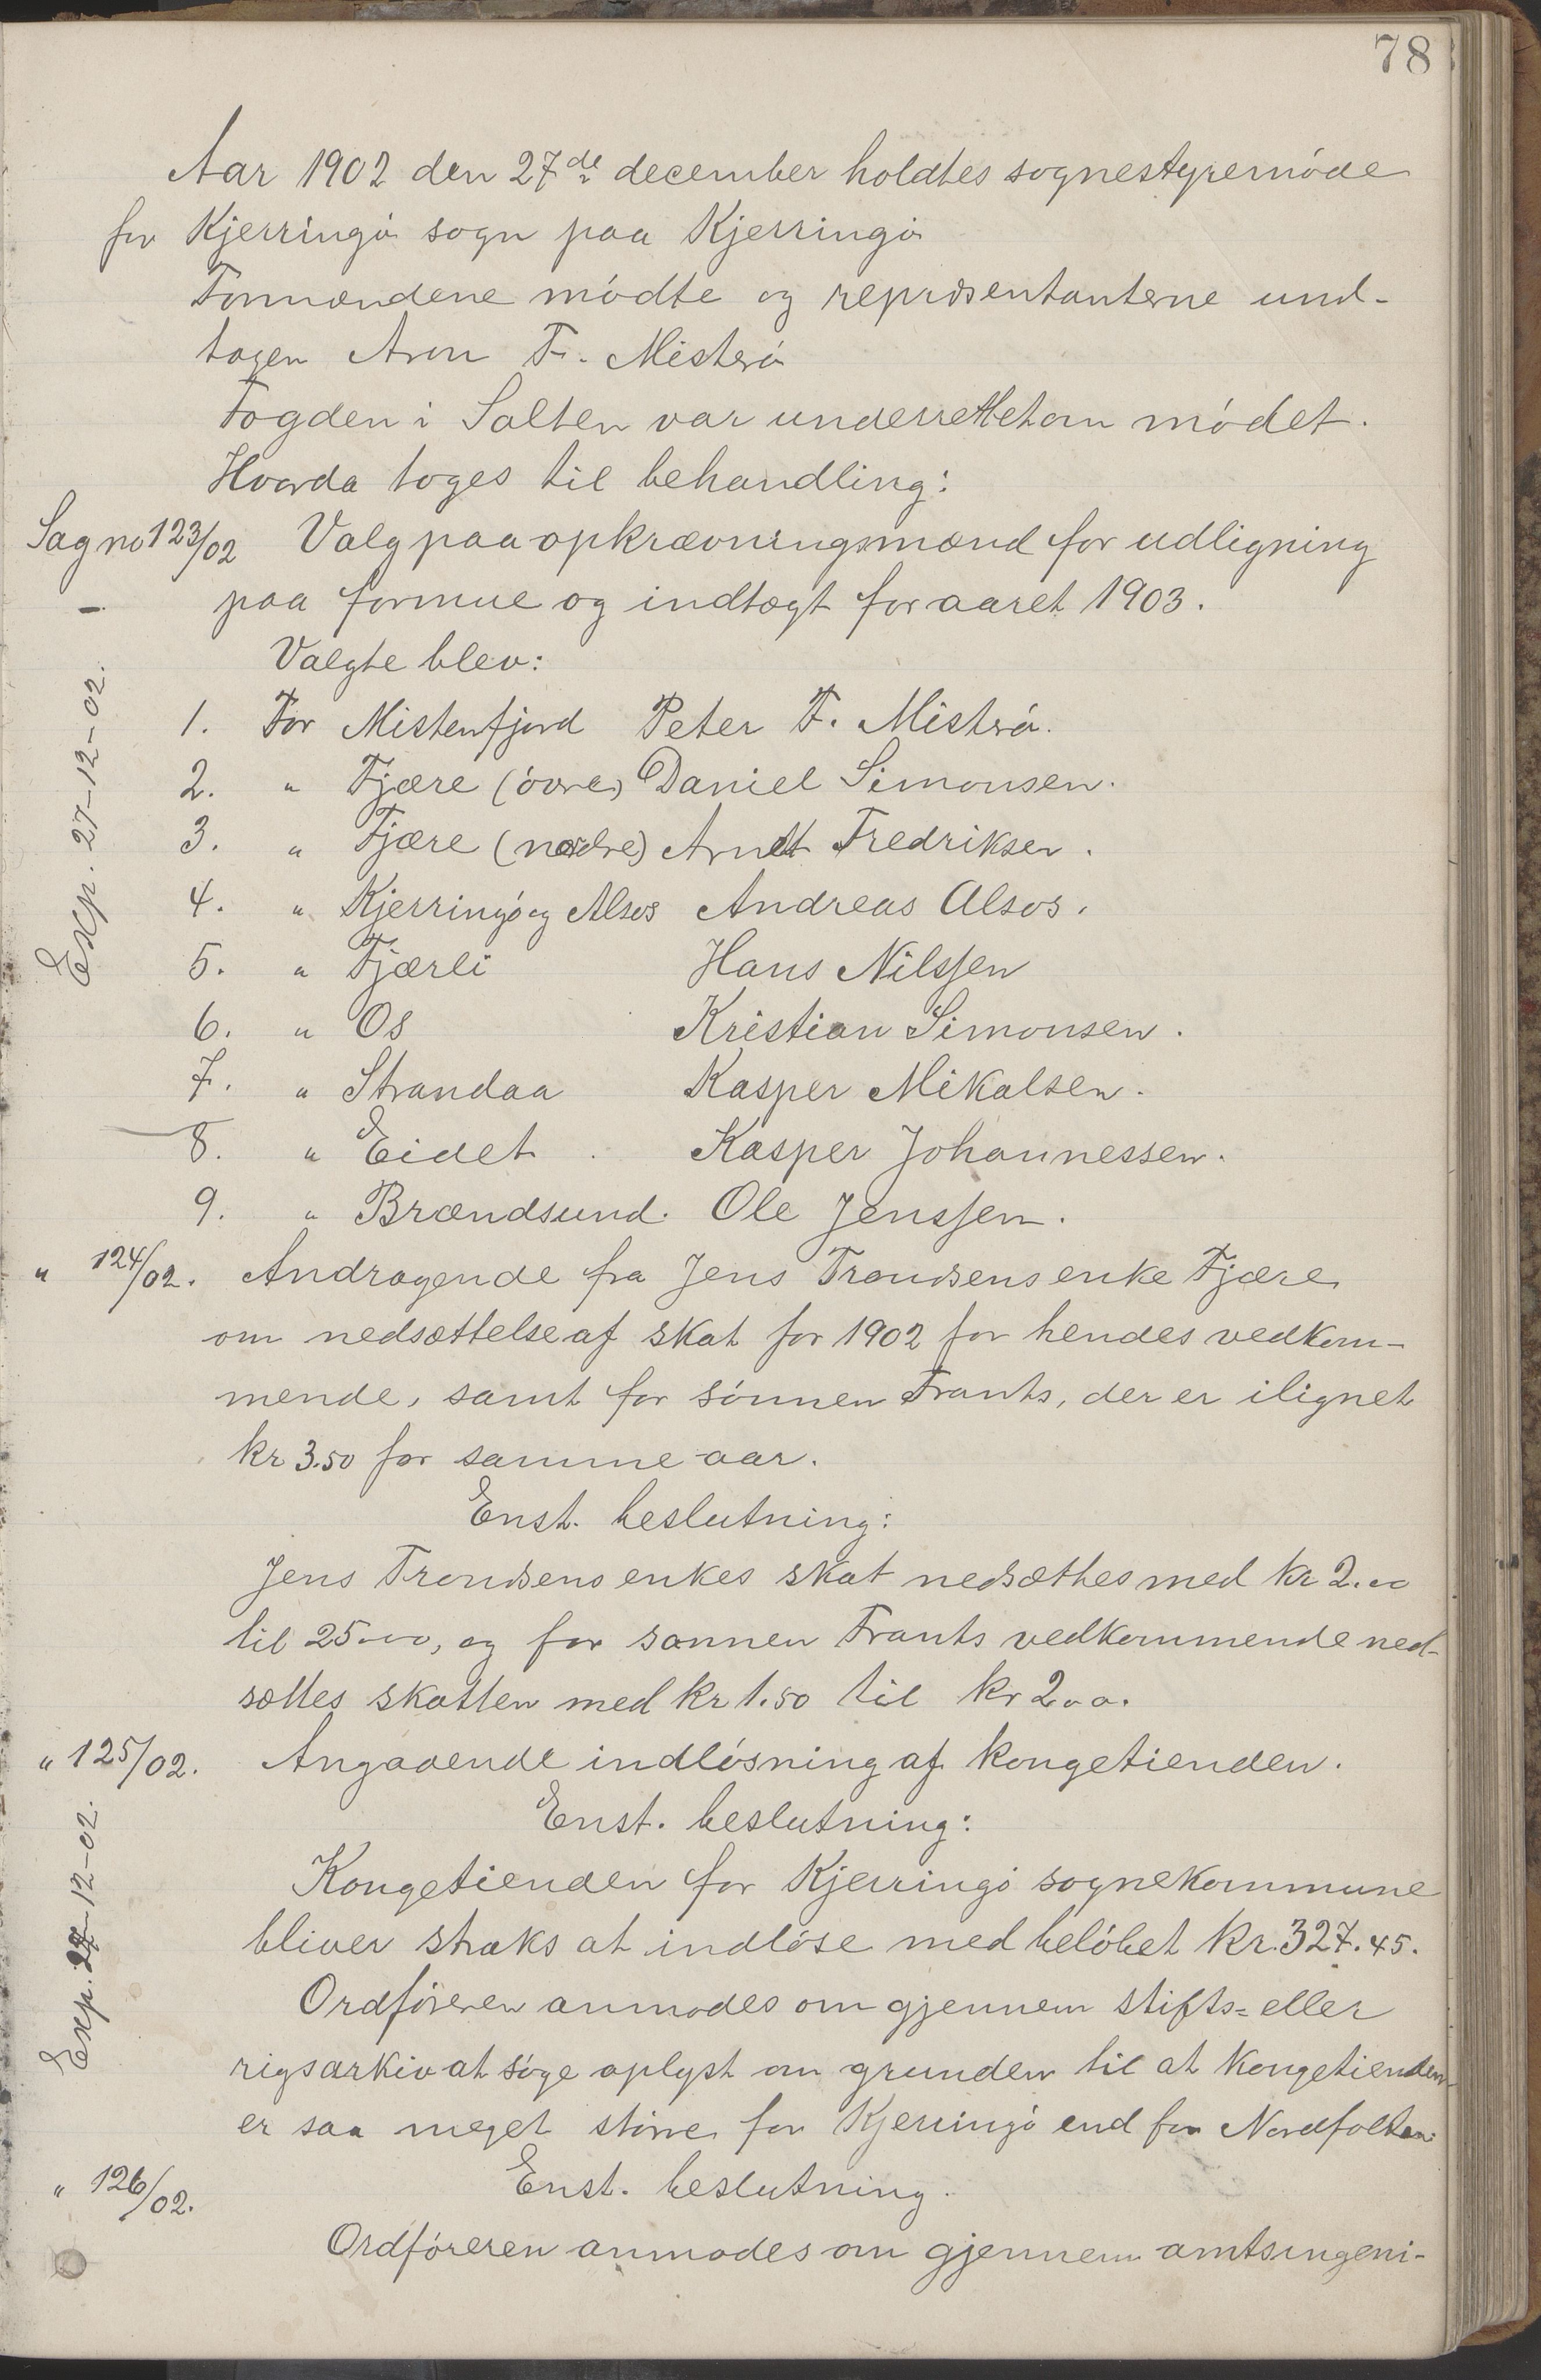 78
Aar 1902 den 27de december holdtes sognestyremöde
for Kjerringö sogn paa Kjerringö
Formændene mödte og repræsentanterne und-
tagen Aron Fr. Misterö
Fogden i Salten var underrettet om mödet.
Hvorda toges til behandling:
Sag no 123/02 Valg paa opkrævningsmænd for udligning
paa formue og indtægt for aaret 1903.
Valgte blev:
Exp. 27-12-02.
1. For Mistenfjord Peter F. Misterö.
2. " Fjære (övre) Daniel Simonsen.
3. " Fjære (nedre) Arndt Fredriksen.
4. " Kjerringö og Alsos Andreas Alsos.
5. " Fjærli Hans Nilssen
6. " Os Kristian Simonsen.
7. " Strandaa Kasper Mikalsen.
8. " Eidet. Kasper Johannessen.
9. " Brændsund. Ole Jenssen.
" 124/02. Andragende fra Jens Trondsens enke Fjære
om nedsættelse af skat for 1902 for hendes vedkom-
mende, samt for sönnen Frants, der er ilignet
kr 3.50 for samme aar.
Enst. beslutning:
Jens Trondsens enkes skat nedsættes med kr 2.00
til 25.00, og for sønnen Frants vedkommende ned-
sættes skatten med kr 1.50 til kr 2.00.
" 125/02. Angaaende indlösning af kongetienden.
Enst. beslutning:
Exp. 27-12-02.
Kongetienden for Kjerringö sognekommune
bliver straks at indlöse med belöbet kr. 327.45.
Ordföreren anmodes om gjennem stifts- eller
rigsarkiv at söge oplyst om grunden til at kongetienden
er saa meget större for Kjerringö end for Nordfolden.
" 126/02. Enst. beslutning.
Ordföreren anmodes om gjennem amtsingeni-